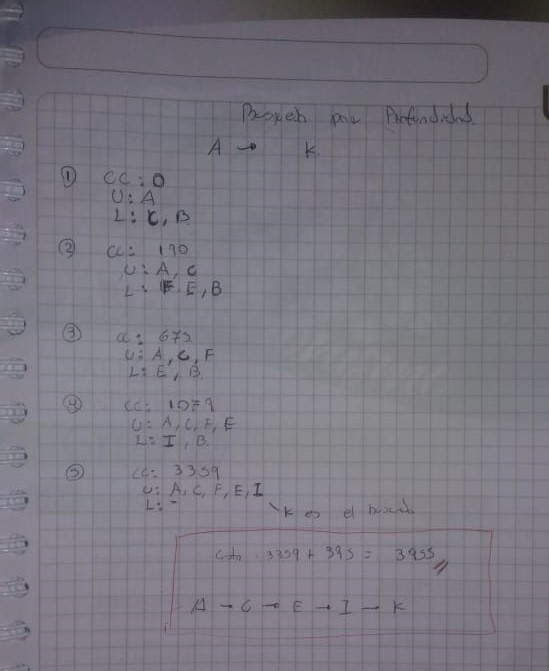 por Profundidad
A → K
① CC: 0
U: A
L: C, B
② CC: 190
U: A, C
L: F E, B
③ CC: 675
U: A, C, F
L: E, B
④ CC: 1079
U: A, C, F, E
L: I, B
⑤ CC: 3359
U: A, C, F, E, I
L: -
K es el buscado
3359 + 395 = 3955
A → C → E → I → K